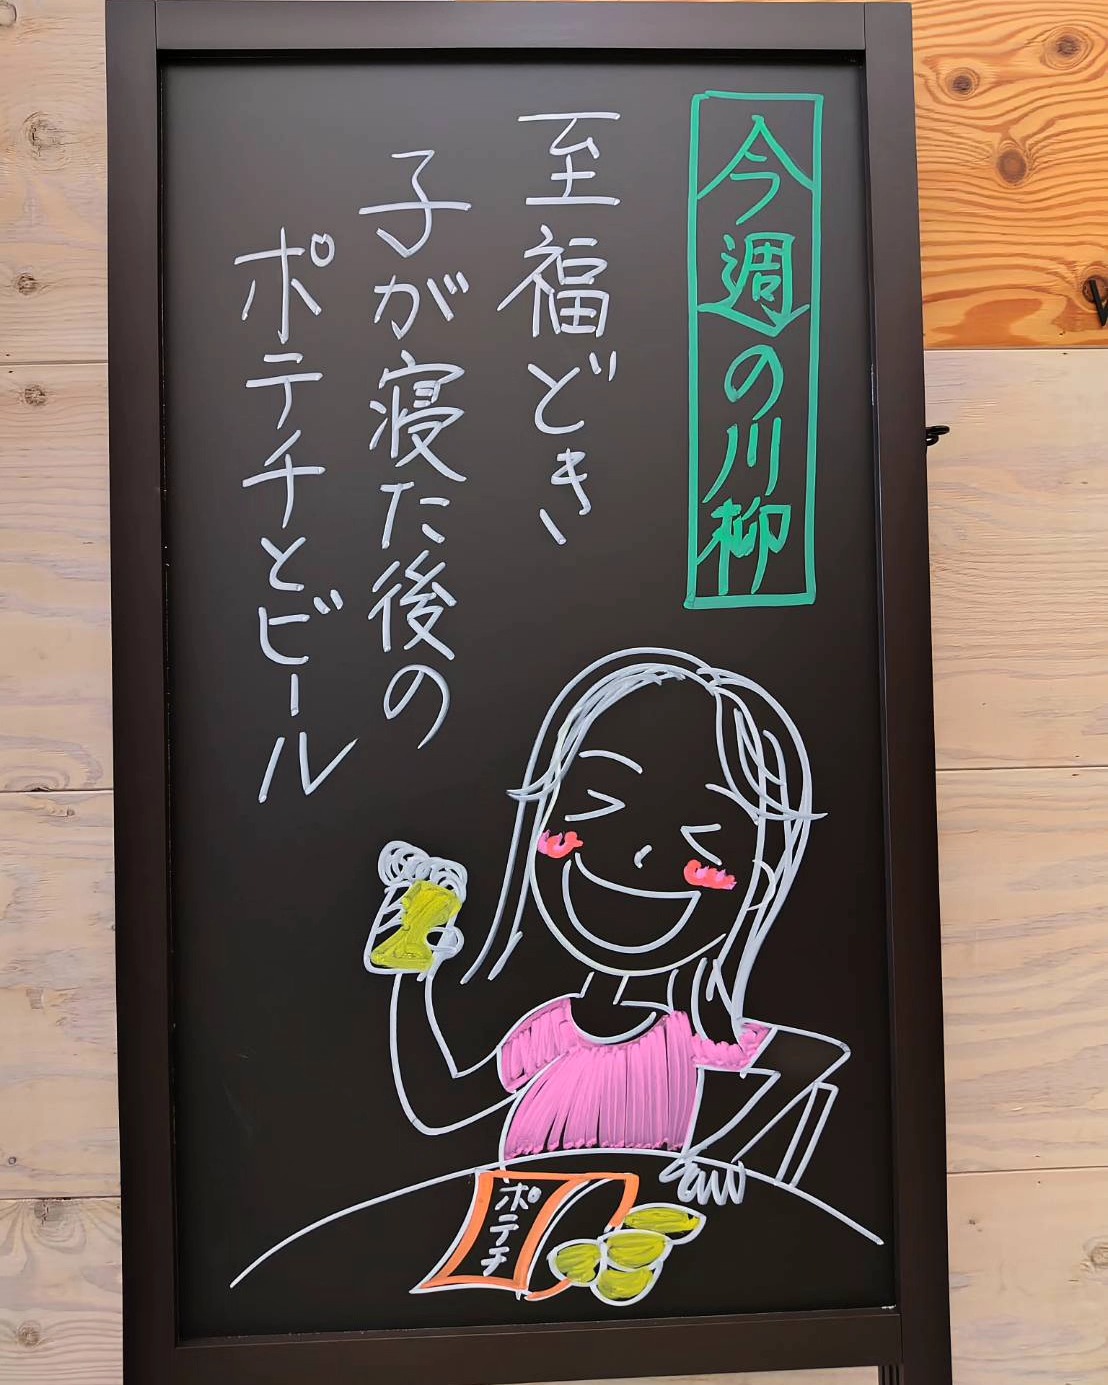 今週の川柳
至福どき
子が寝た後の
ポテチとビール
ポテチ